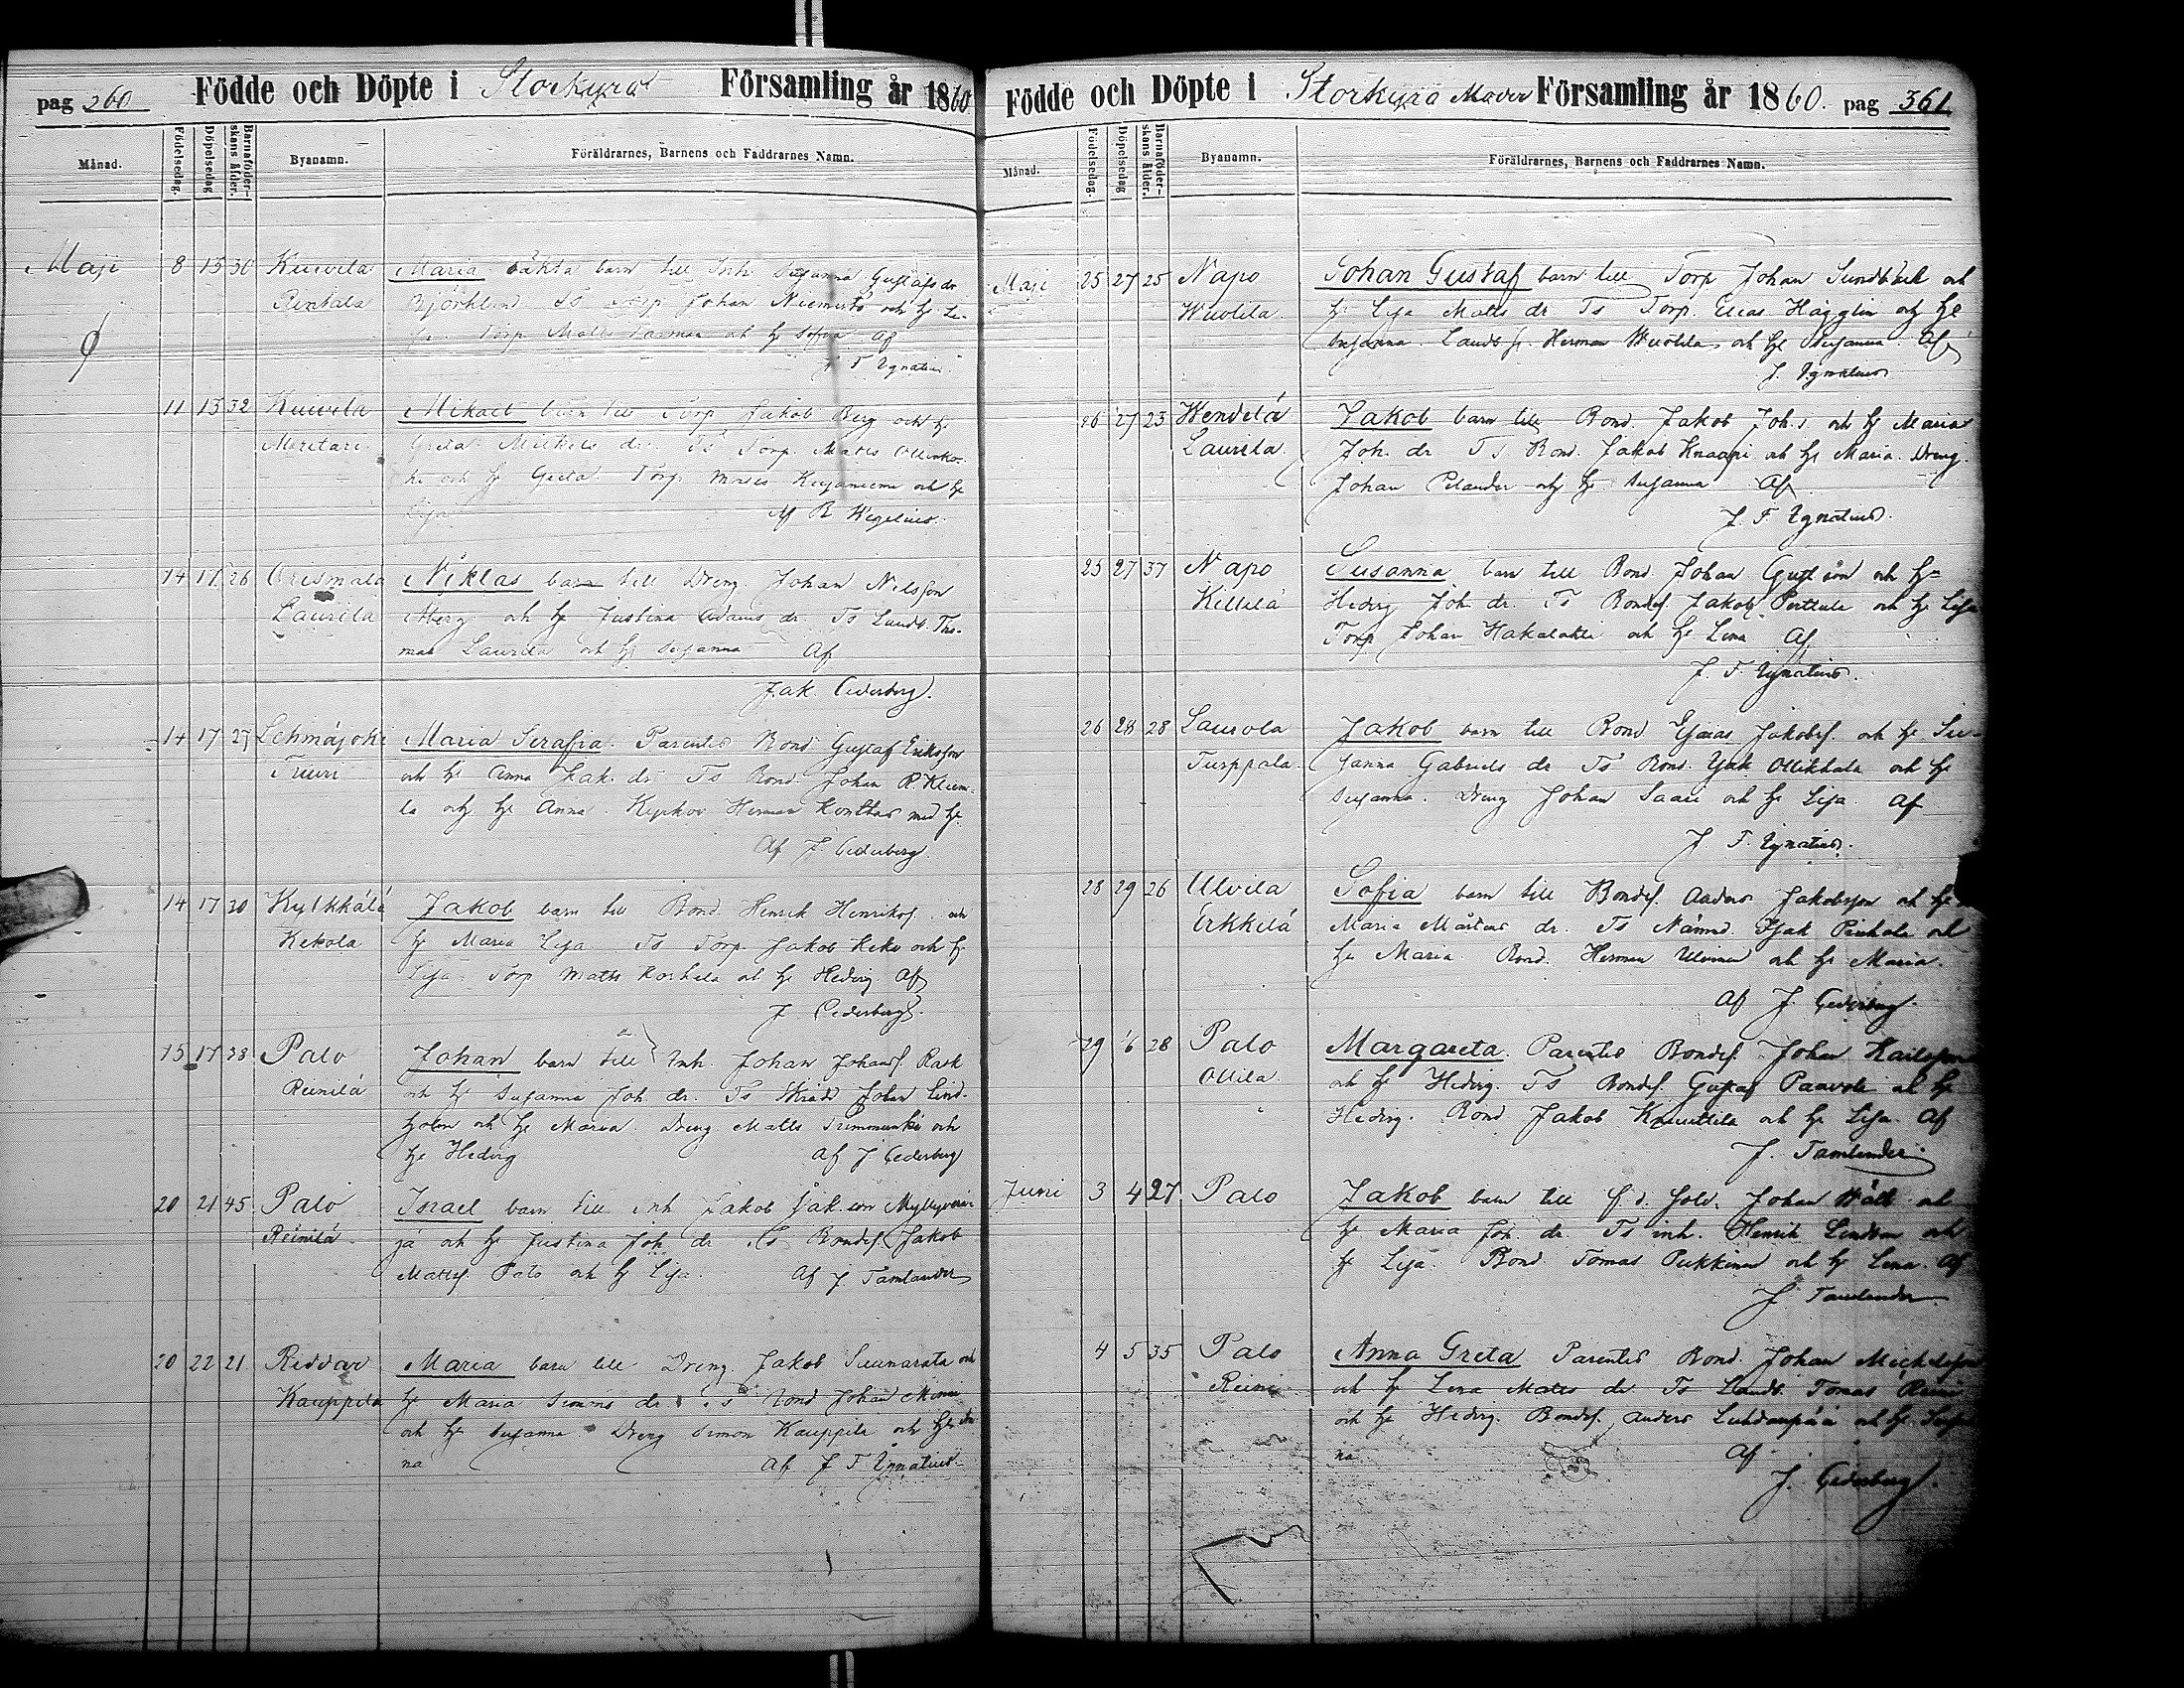 pag 260 Födde och Döpte i Storkyro Församling år 1860
Månad. Födelsedag. Döpelsedag Barnaföder-skans ålder. Byanamn. Föräldrarnes, Barnens och Faddrarnes Namn.
Maji 8 13 30 Kuivila Maria oäkta barn till Inh Susanna Gustafs dr
Rintala Björklund Ts Torp Johan Niemistö och h Li-
sa Torp Matts och h Sofia Af
J F Ignatius
11 13 32 Kuivila Mikael barn till Torp Jakob Berg och h
Greta Mickels dr Ts Torp Matts
och h Greta Torp och h
Lisa Af B Wegelius.
14 17 26 Orismala Niklas barn till Dreng Johan Nilsson
Laurila Åberg och h Justina Adams dr Ts Landb. Tho-
mas Laurila och h Susanna Af
Jak. Cederberg.
14 17 27 Lehmäjoki Maria Serafia. Parentes Bond Gustaf Eriksson
Truuri och h Anna Jak. dr Ts Bond. Johan
la och h Anna. Kyrkov Herman Konttas med h
Af J. Cederberg.
14 17 30 Kylkkälä Jakob barn till Bond Henrik Henrikss. och
Kekola h Maria Lisa Ts Torp. Jakob Keko och h
Lisa. Torp Matts Korkela och h Hedvig Af
J Cederberg.
15 17 38 Palo Johan barn till Inh. Johan Johans. Rask
Reinilä och h Susanna Joh. dr. Ts Skrädd Johan Lind-
holm och h Maria. Dreng Matts och
h Hedvig Af J Cederberg
20 21 45 Palo Israel barn till inh Jakob Jak. son Myllyvain-
Reinilä jä och h Justina Joh dr Ts Bondes. Jakob
Mattss. Palo och h Lisa. Af J. Tamlander
20 22 21 Reddar Maria barn till Dreng Jakob och
Kauppila h Maria Simons dr Ts Bond Johan
och h Susanna Dreng Simon Kauppila och h An-
na Af J F Ignatius
Födde och Döpte i Storkyro Moder Församling år 1860. pag 361
Månad. Födelsedag. Döpelsedag Barnaföder-skans ålder. Byanamn. Föräldrarnes, Barnens och Faddrarnes Namn.
Maji 25 27 25 Napo Johan Gustaf barn till Torp Johan Sundbäck och
Wuolila. h Lisa Matts dr Ts Torp. Elias Hägglin och h
Susanna. Landb. Herman Wuolila och h Susanna Af
J. Ignatius
26 27 23 Wendelä Jakob barn till Bond. Jakob Joh. s och h Maria
Laurila. Joh. dr Ts Bond. Jakob Knaapi och h Maria. Dreng
Johan Pelander och h Susanna Af
J. F. Ignatius.
25 27 37 Napo Susanna barn till Bond Johan Gust son och h
Killilä Hedvig Joh. dr. Ts Bondes. Jakob Perttula och h Lisa
Torp Johan Hakalahti och h Lena Af
J. F. Ignatius.
26 28 28 Lausola Jakob barn till Bond Esaias Jakobs. och h Su-
Turppala. sanna Gabriels dr Ts Bond. Isak Ollikkala och h
Susanna. Dreng Johan Saari och h Lisa. Af
J. F. Ignatius.
28 29 26 Ulvila Sofia barn till Bondes. Anders Jakobsson och h
Erkkilä Maria Mårtens dr. Ts Nämnd. Isak och
h Maria. Bond. Herman Ulvinen och h Maria.
Af J. Cederberg.
29 6 28 Palo Margareta. Parentes Bondes. Johan
Ollila. och h Hedvig. Ts Bondes. Gustaf Paavola och h
Hedvig. Bond Jakob Knuuttila och h Lisa. Af
J. Tamlander.
Juni 3 4 27 Palo Jakob barn till f. d. sold. Johan Wält och
h Maria Joh. dr Ts inh. Henrik Lindbom och
h Lisa. Bond Tomas Pukkinen och h Lena. Af
J Tamlander
4 5 35 Palo Anna Greta Parentes Bond. Johan Michelsson
Reini och h Lena Matts dr Ts Landb. Tomas Reini
och h Hedvig. Bondes. Anders Luhdanpää och h Susan-
na Af
J. Cederberg.